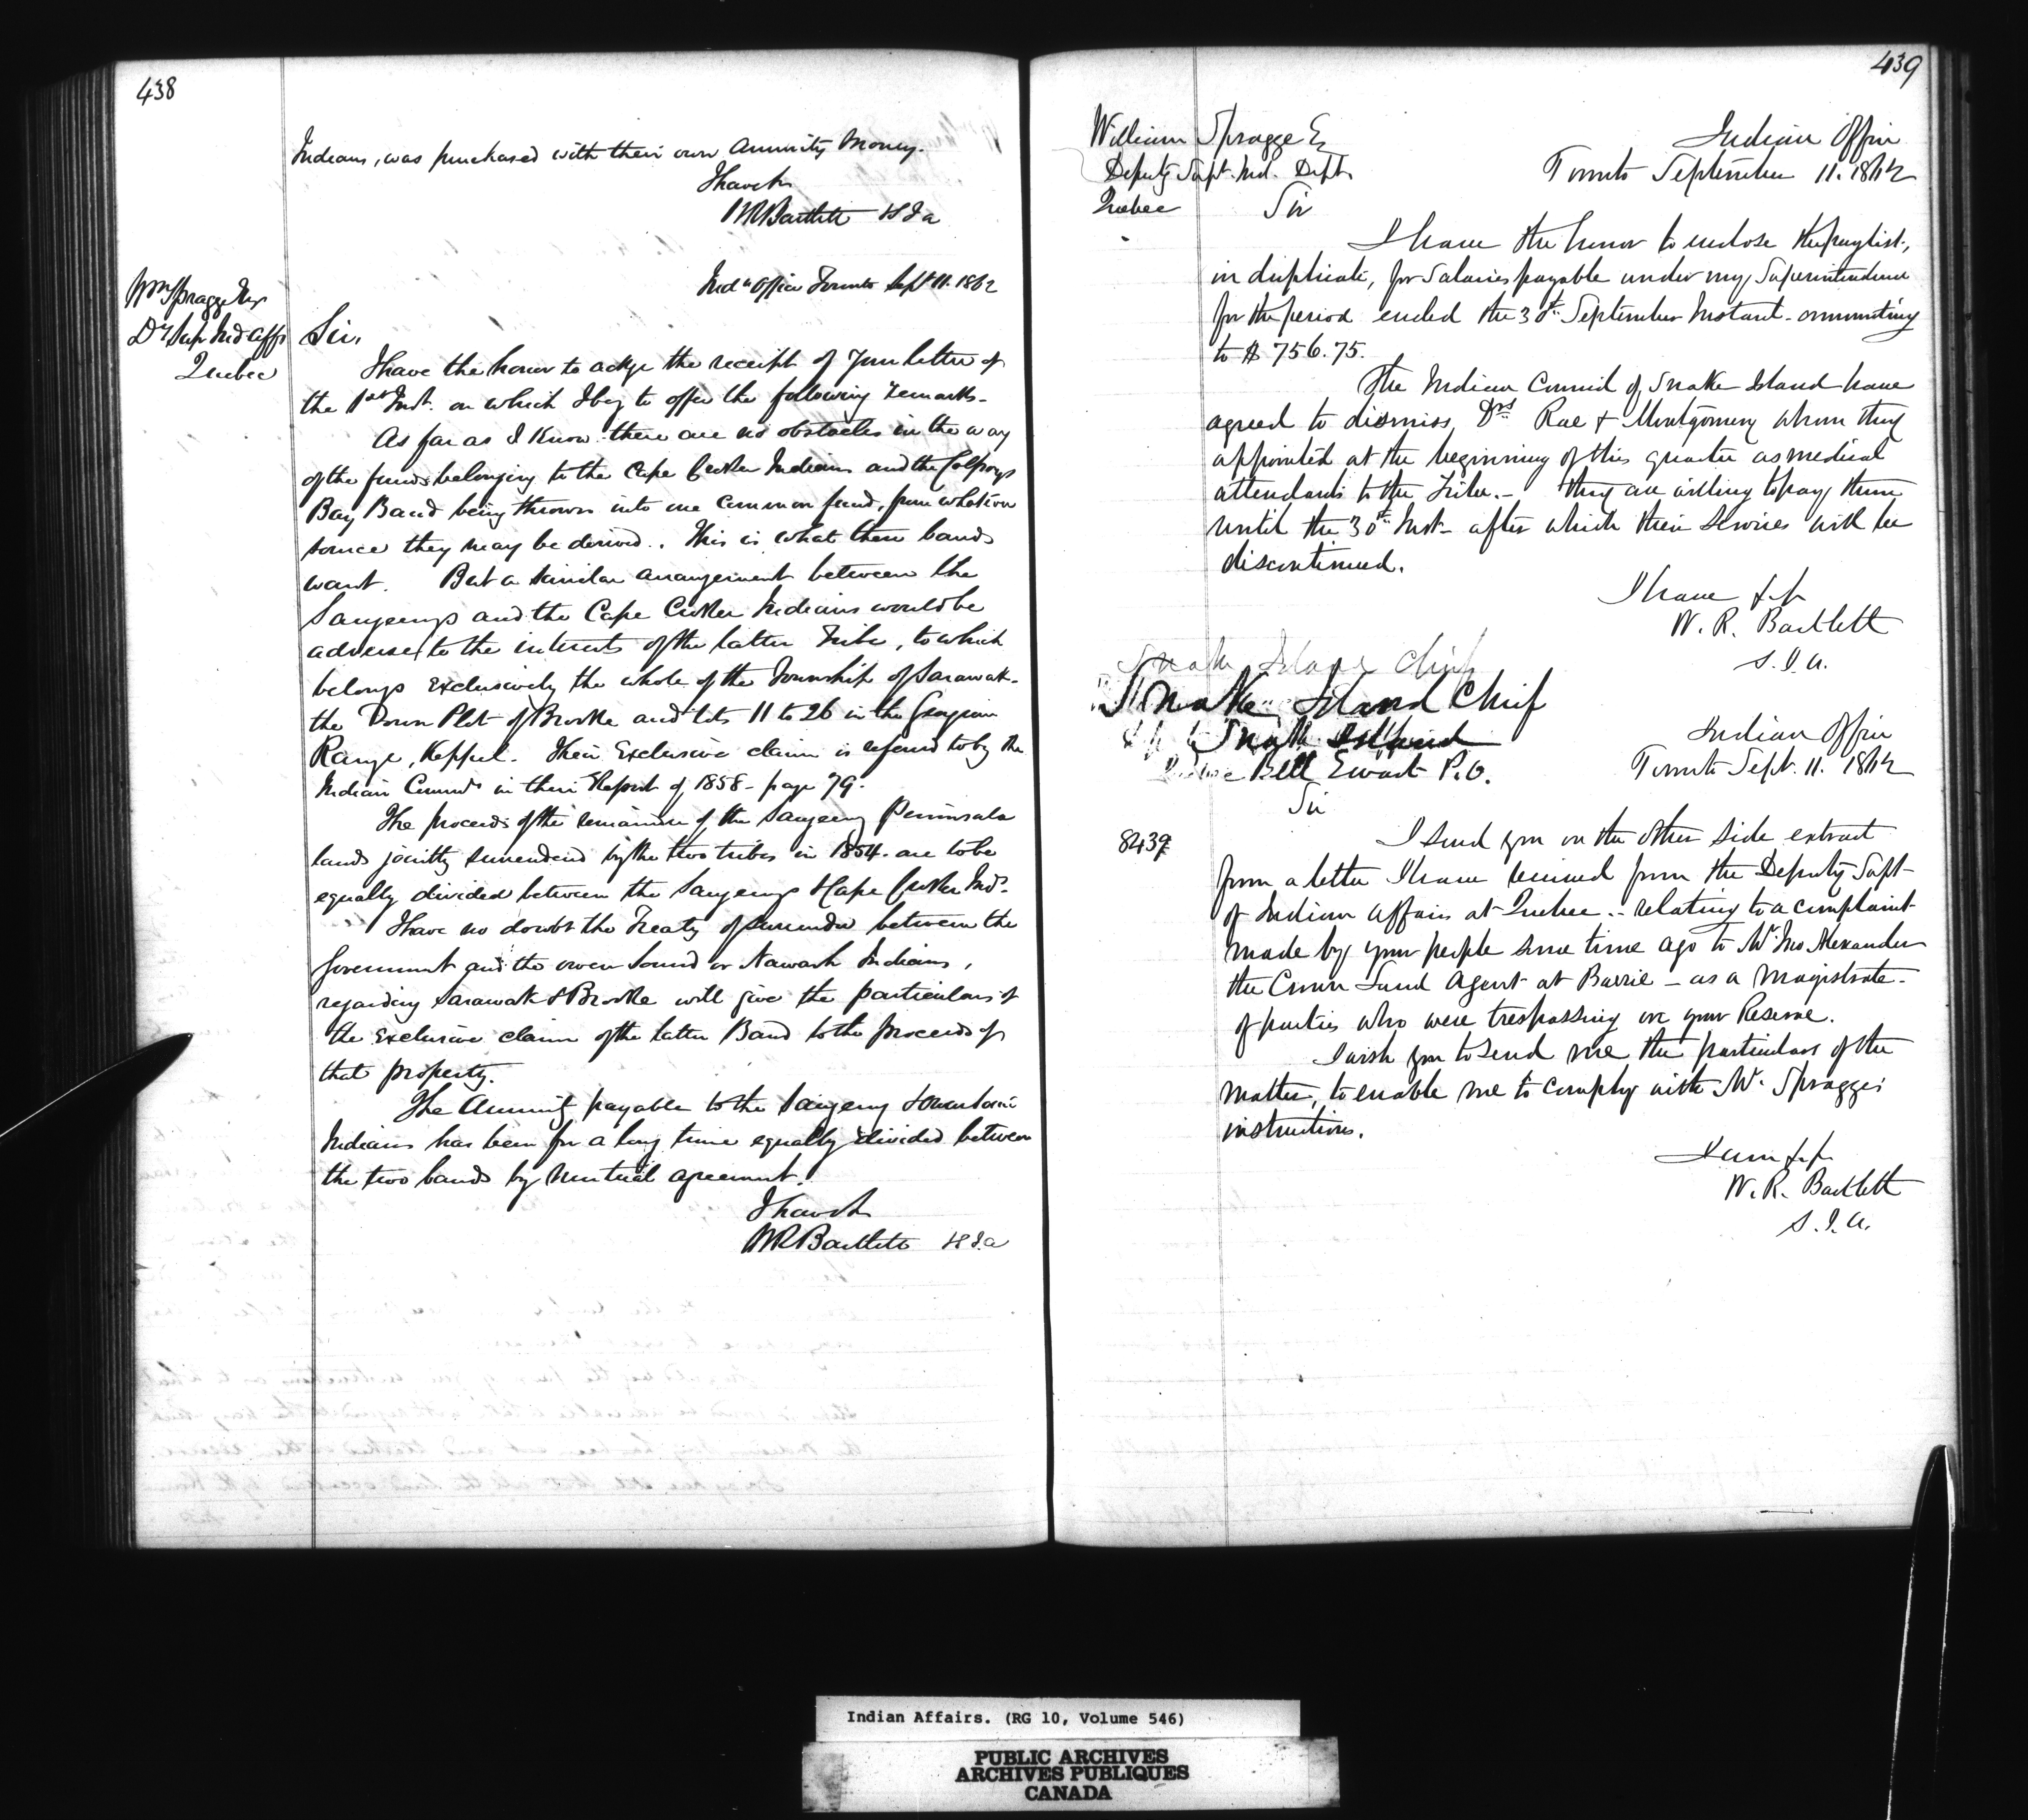 438
Indians, was purchased with their own Annuity Money.
I have &c
WRBartlett S I a
Ind<sup>n</sup> Office Toronto Sept 11. 1862
Wm Spragge Esqr
Dy Sup Ind Affs
Quebec
Sir,
I have the honor to ackge the receipt of your letter of
the 1st Inst. on which I beg to offer the following remarks-
As far as I know there are no obstacles in the way
of the funds belonging to the Cape Croker Indians and the Colpoys
Bay Band being thrown into one common fund, from whatever
source they may be derived. This is what these bands
want. But a similar arrangement between the
Saugeengs and the Cape Croker Indians would be
adverse to the interests of the latter Tribe, to which
belongs exclusively the whole of the Township of Sarawak-
the Town Plot of Brooke and lots 11 to 26 in the Georgian
Range, Keppel. Their exclusive claim is referred to by the
Indian Commrs in their Report of 1858- page 79.
The proceeds of the remainder of the Saugeeng Peninsula
lands jointly surrendered by the two tribes in 1854. are to be
equally divided between the Saugeengs & Cape Croker Inds.
I have no doubt the Treaty of surrender between the
Government and the owen Sound or Nawash Indians,
regarding Sarawak & Brooke will give the particulars of
the exclusive claim of the latter Band to the proceeds of
that property.
The Annuity payable to the Saugeeng & Owen Sound
Indians has been for a long time equally divided between
the two bands by mutual agreement.
I have &c
WRBartlett S I.a
439
William Spragge Eq
Deputy Supt. Ind. Dept.
Quebec
Indian Office
Toronto September 11. 1862
Sir
I have the honor to enclose the paylist,
in duplicate, for Salaries payable under my Superintendence
for the period ended the 30th September Instant- amounting
to $ 756.75.
The Indian Council of Snake Island have
agreed to dismiss, Drs Rae & Montgomery whom they
appointed at the beginning of this quarter as medical
attendants to the Tribe.- They are willing to pay them
until the 30th Inst- after which their services will be
discontinued.
I have &c
W. R. Bartlett
S. I. A.
Snake Island Chief
Snake Island Chief
Snake Island
Bell Ewart P.O.
Indian Office
Toronto Sept. 11. 1862
Sir
8439
I send you on the other side extract
from a letter I have received from the Deputy Supt-
of Indian Affairs at Quebec.- relating to a complaint
made by your people some time ago to Mr. Jno Alexander
the Crown Land Agent at Barrie - as a Magistrate-
of parties who were trespassing on your Reserve.
I wish you to send me the particulars of the
matter, to enable me to comply with Mr. Spragge's
instructions.
I am &c
W. R. Bartlett
S. I. A.
Indian Affairs. (RG 10, Volume 546)
PUBLIC ARCHIVES
ARCHIVES PUBLIQUES
CANADA